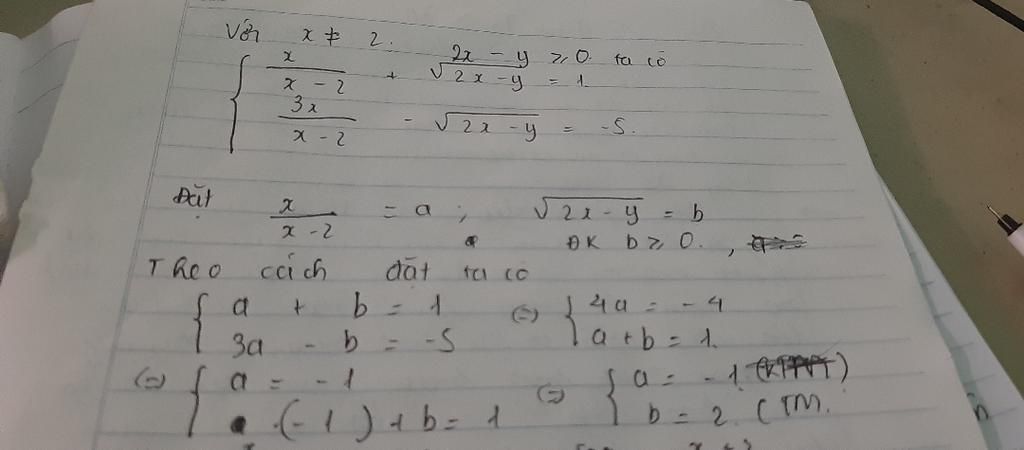 Với x ≠ 2. 2x - y ≥ 0. ta có
{ x/(x - 2) + √(2x - y) = 1.
3x/(x - 2) - √(2x - y) = -5.
Đặt x/(x - 2) = a ; √(2x - y) = b
ĐK b ≥ 0. ,
Theo cách đặt ta có
{ a + b = 1 (=) { 4a = - 4
3a - b = -5 a + b = 1.
(=) { a = - 1 (=) { a = - 1.
(-1) + b = 1 b = 2. (TM.